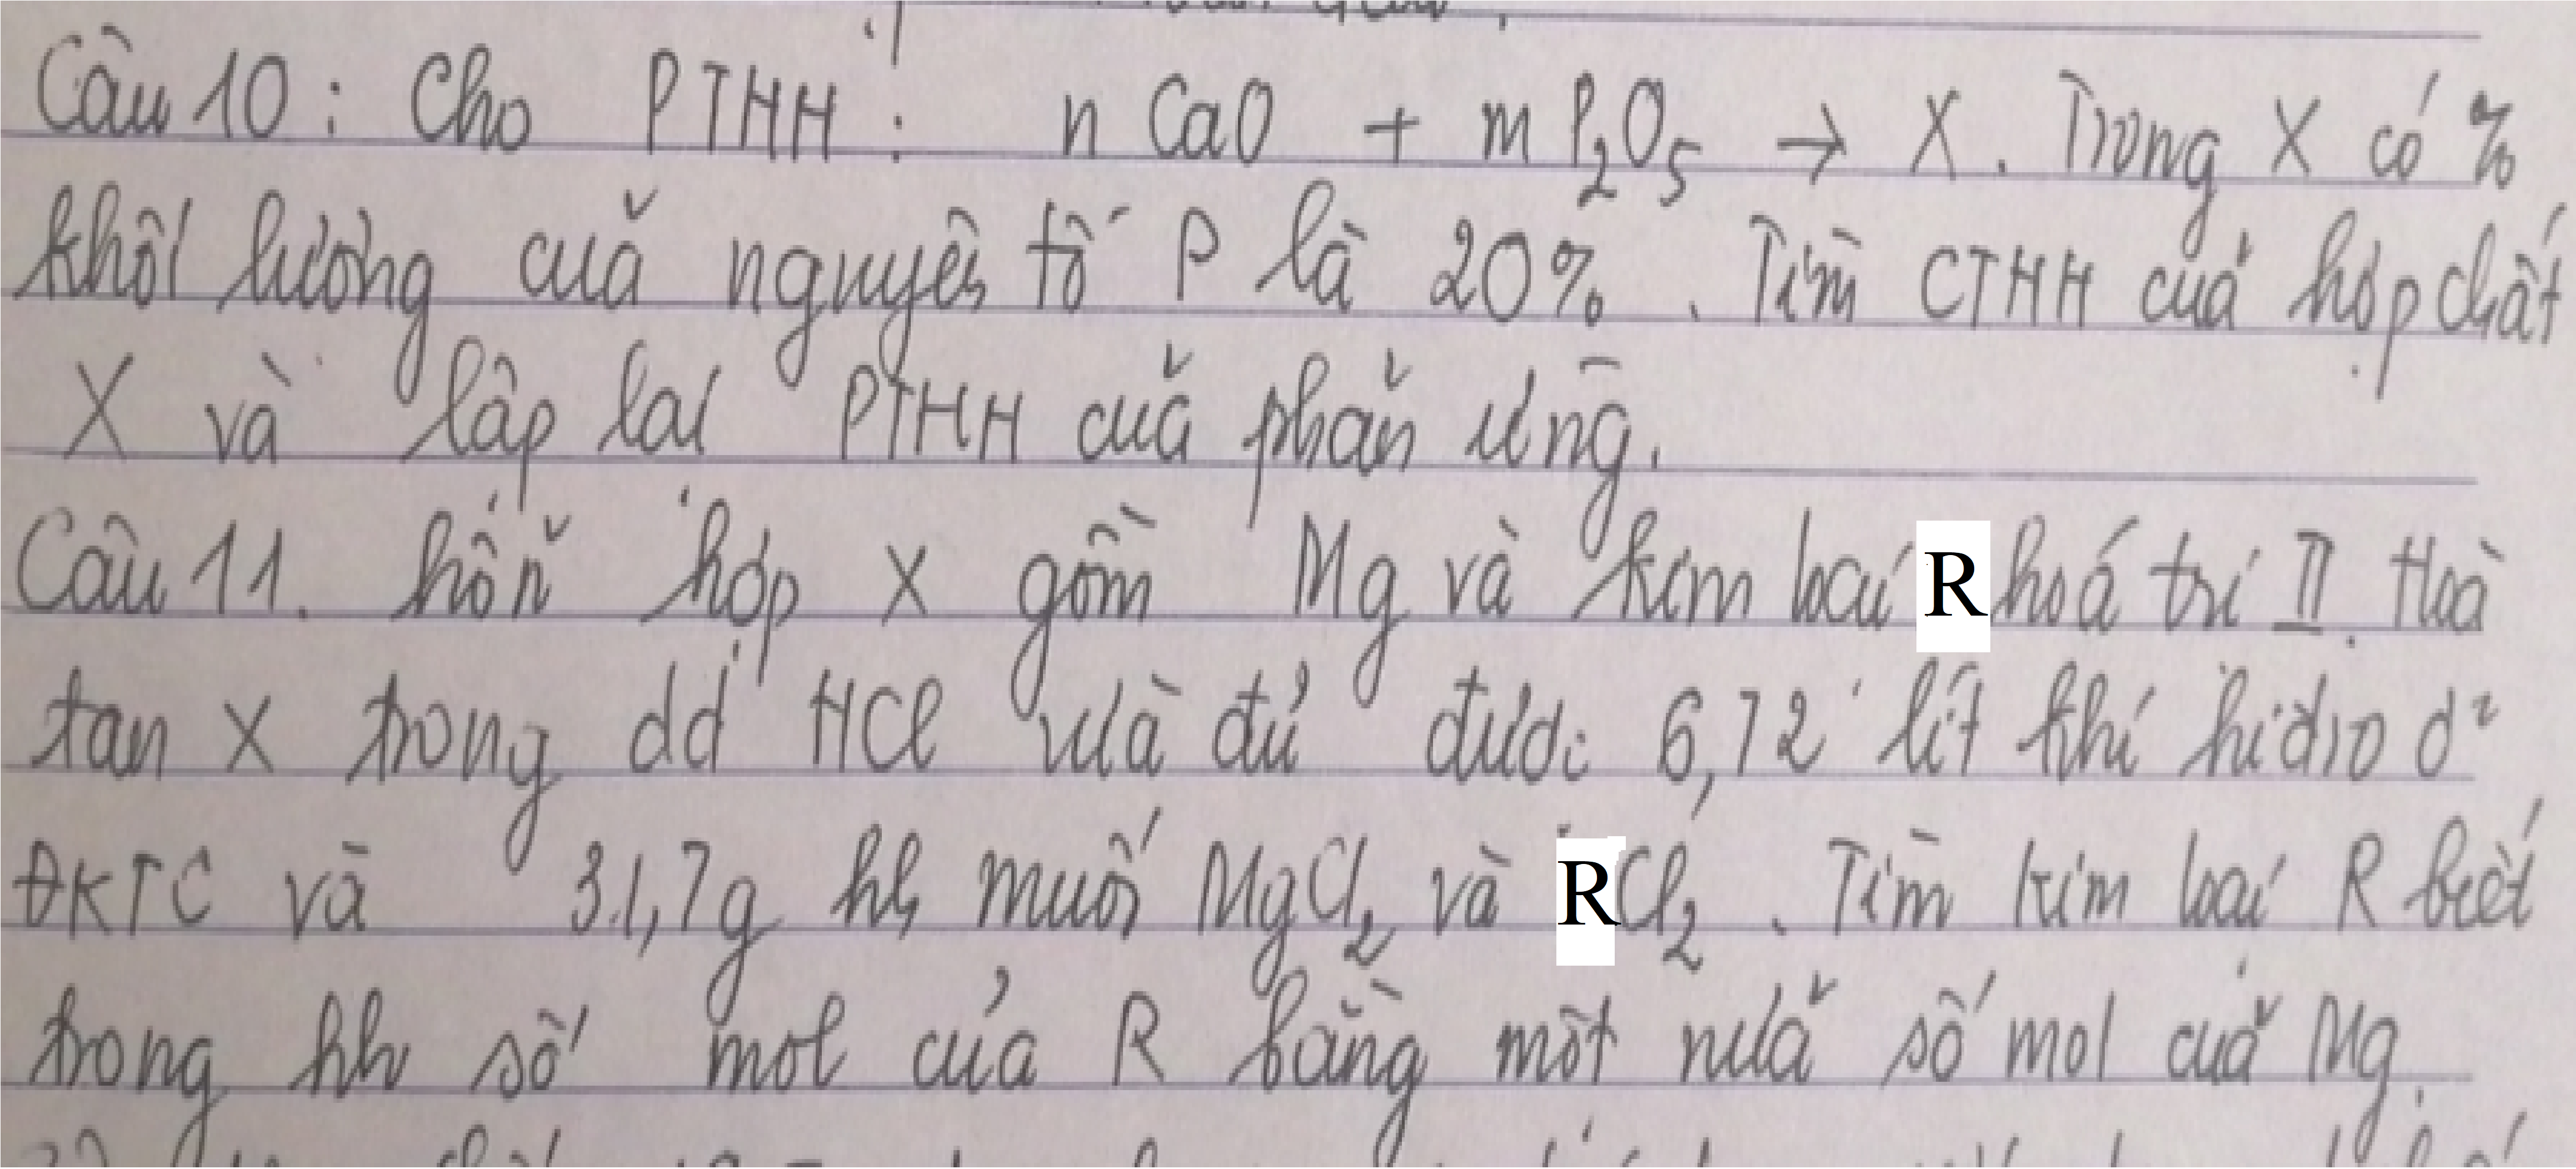 Câu 10: Cho PTHH: n CaO + m P₂O₅ → X. Trong X có %
khối lượng của nguyên tố P là 20%. Tìm CTHH của hợp chất
X và lập lại PTHH của phản ứng.
Câu 11. hỗn hợp X gồm Mg và kim loại R hoá trị II. Hoà
tan X trong dd HCl vừa đủ được 6,72 lít khí hiđro ở
ĐKTC và 31,7g hh muối MgCl₂ và RCl₂. Tìm kim loại R biết
trong hh số mol của R bằng một nửa số mol của Mg.